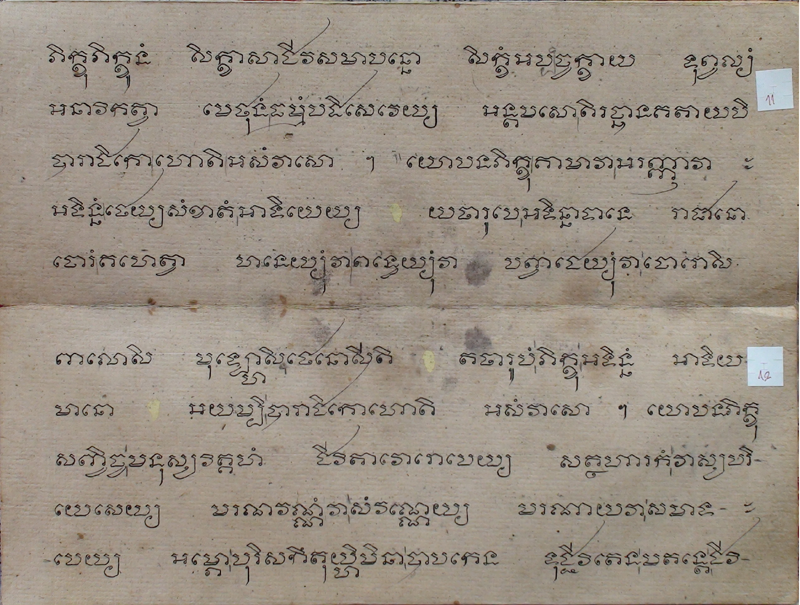 ភិក្ខុភិក្ខុនំ សិក្ខាសាជីវសមាបន្នោ សិក្ខំអបច្ចក្ខាយ ទុព្វល្យំ
11
អនាវិកត្វា មេថុនំធម្មំបដិសេវេយ្យ អន្តមសោតិរច្ឆានគតាយបិ
បារាជិកោហោតិអសំវាសោ ។ យោបនភិក្ខុគាមាវាអរញ្ញាវា
អទិន្នំថេយ្យសំខាតំអាទិយេយ្យ យថារូបេអទិន្នាទានេ រាជានោ
ចោរំគហេត្វា ហនេយ្យុំវាពន្ធេយ្យុំវា បព្វាជេយ្យុំវាចោរោសិ
ពាលោសិ មុឡ្ហោសិថេនោសីតិ តថារូបំភិក្ខុអទិន្នំ អាទិយ-
12
មានោ អយម្បិបារាជិកោហោតិ អសំវាសោ ។ យោបនភិក្ខុ
សញ្ចិច្ចមនុស្សវិគ្គហំ ជីវិតាវោរោបេយ្យ សត្ថហារកំវាស្សបរិ-
យេសេយ្យ មរណវណ្ណំវាសំវណ្ណេយ្យ មរណាយវាសមាទ-
បេយ្យ អម្ភោបុរិសកឹតុយ្ហិមិនាបាបកេន ទុជ្ជីវិតេនមតន្តេជីវិ-